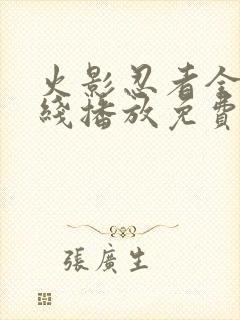 火影忍者全
綫播放免費
張廣生